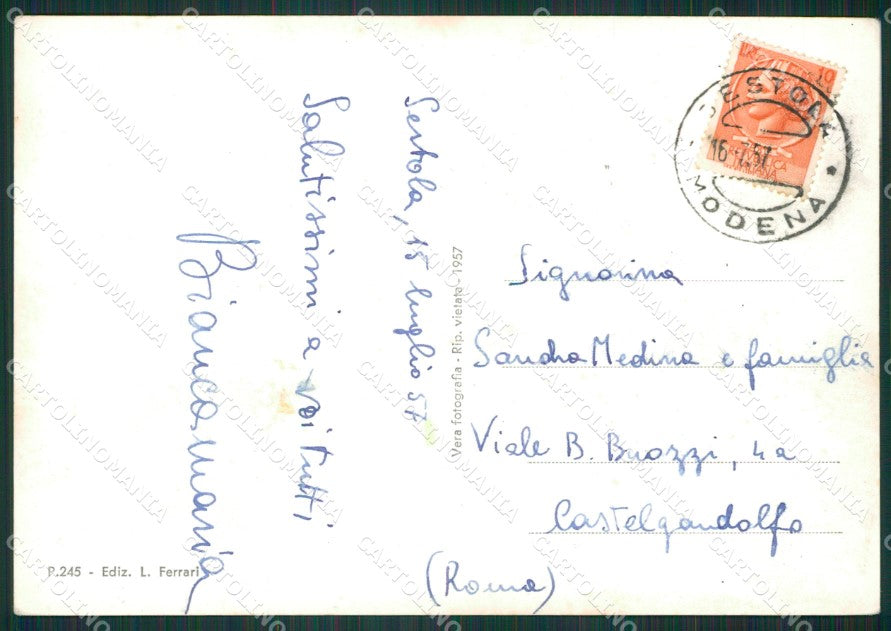 Sestola, 15 luglio 57
Salutissimi a voi tutti
Biancamaria
Vera fotografia - Rip. vietata - 1957
P.245 - Ediz. L. Ferrari
10
SESTOLA
16 7 57
MODENA
Signorina
Sandra Medina e famiglia
Viale B. Buozzi, 4a
Castelgandolfo
(Roma)
CARTOLINOMANIA